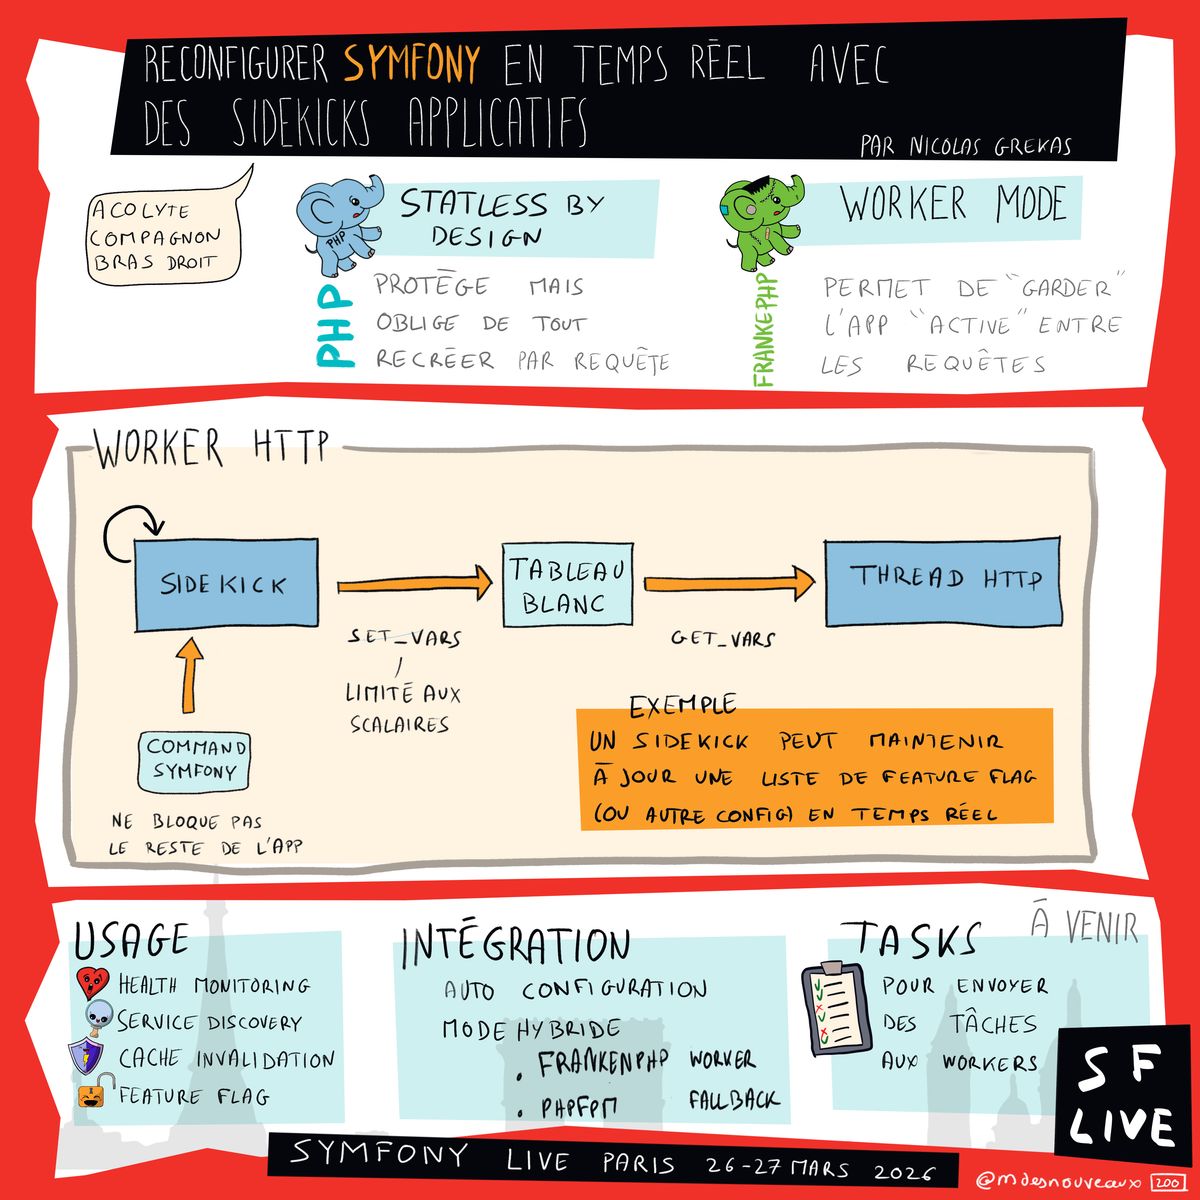 RECONFIGURER SYMFONY EN TEMPS RÉEL AVEC
DES SIDEKICKS APPLICATIFS
PAR NICOLAS GREKAS
ACOLYTE
COMPAGNON
BRAS DROIT
PHP
PHP
STATLESS BY
DESIGN
PROTÈGE MAIS
OBLIGE DE TOUT
RECRÉER PAR REQUÊTE
FRANKEPHP
WORKER MODE
PERMET DE "GARDER"
L'APP "ACTIVE" ENTRE
LES REQUÊTES
WORKER HTTP
SIDEKICK
TABLEAU
BLANC
THREAD HTTP
SET_VARS
LIMITÉ AUX
SCALAIRES
GET_VARS
COMMAND
SYMFONY
NE BLOQUE PAS
LE RESTE DE L'APP
EXEMPLE
UN SIDEKICK PEUT MAINTENIR
À JOUR UNE LISTE DE FEATURE FLAG
(OU AUTRE CONFIG) EN TEMPS RÉEL
USAGE
HEALTH MONITORING
SERVICE DISCOVERY
CACHE INVALIDATION
FEATURE FLAG
INTÉGRATION
AUTO CONFIGURATION
MODE HYBRIDE
• FRANKENPHP WORKER
• PHPFPM FALLBACK
TASKS À VENIR
POUR ENVOYER
DES TÂCHES
AUX WORKERS
SF
LIVE
SYMFONY LIVE PARIS 26-27 MARS 2026
@mdesnouveaux 200